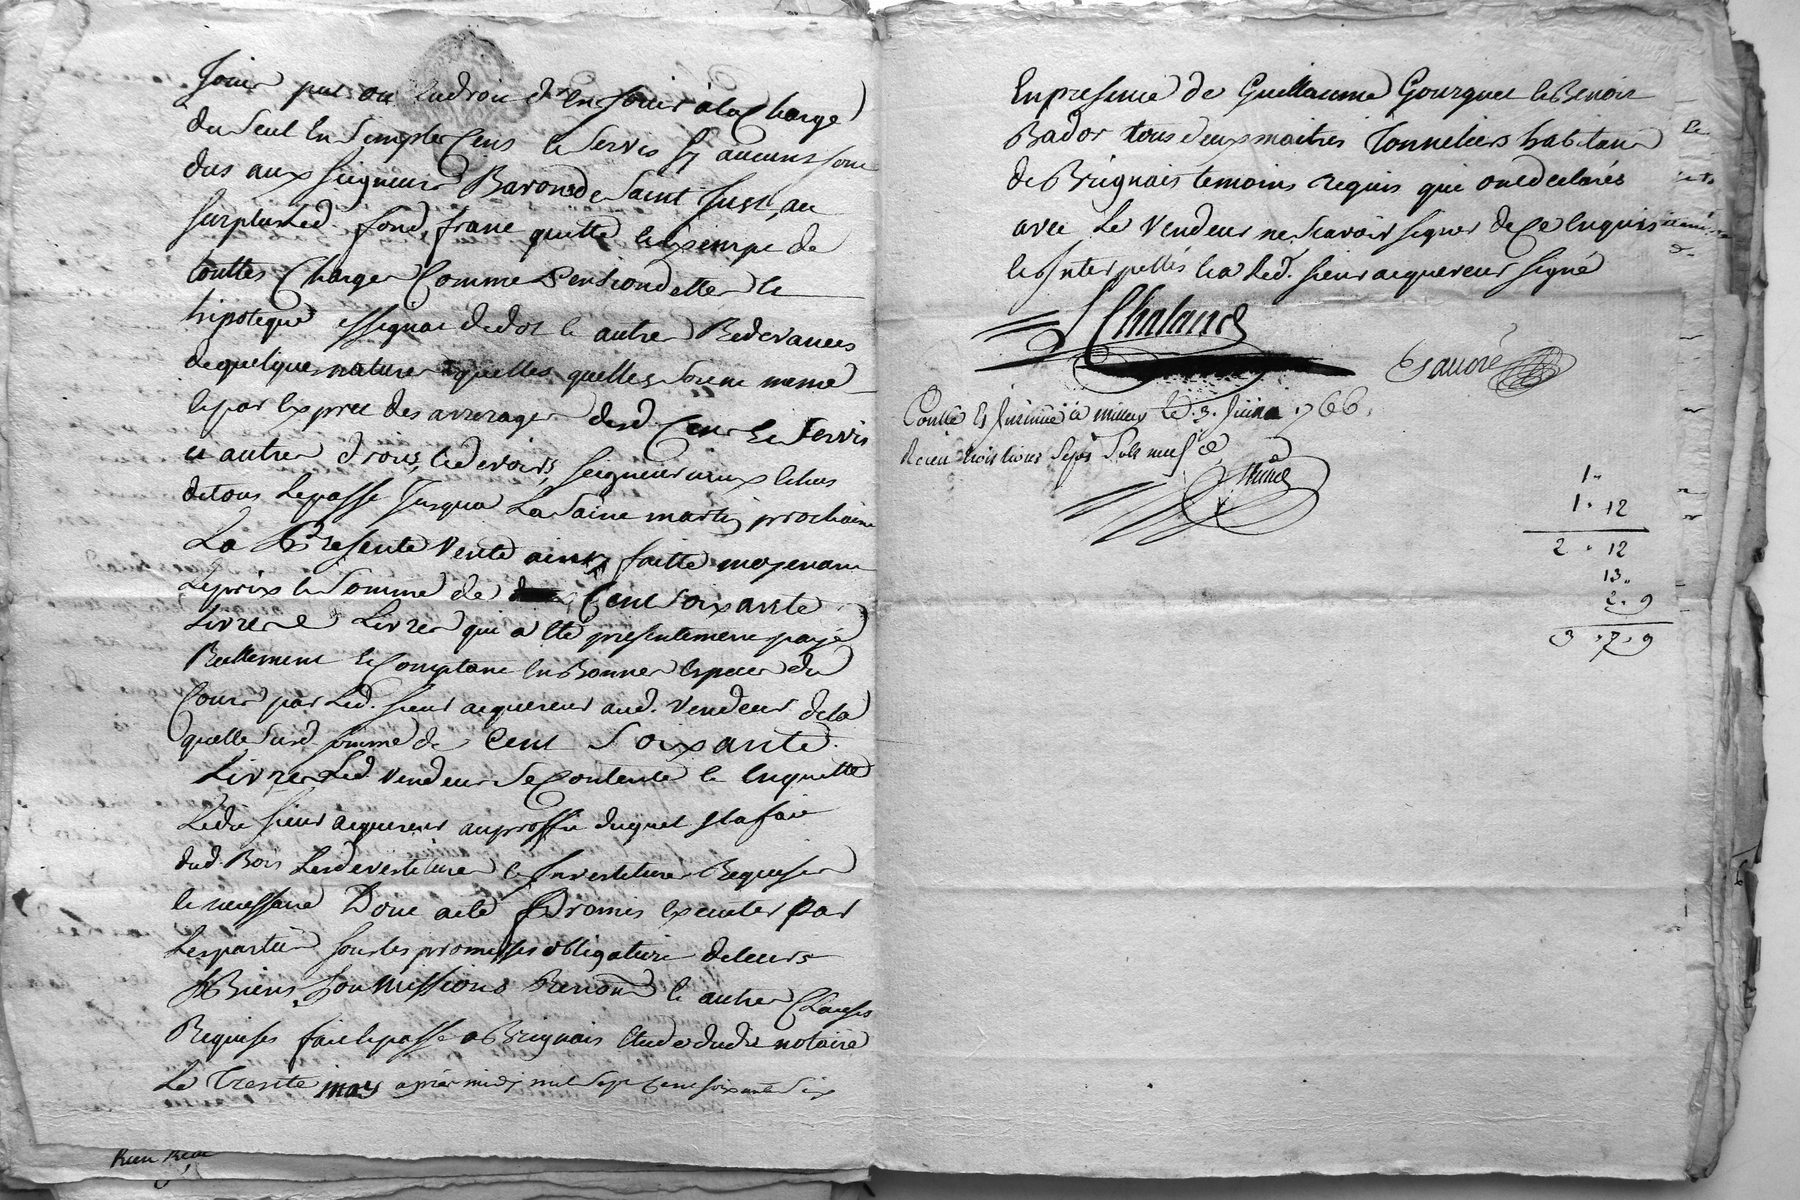 Jouir put ou eudroit d'en Jouir a la Charge
du Seul En Simple Cens le Servis Sy aucuns sont
dus aux Seigneurs Barons de Saint Just, au
surplus led. fond, franc quitte le Exempt de
touttes Charges Comme Pensions dettes le
hipoteque assignat dedot le autres Redevances
de quelques natures quelles quelles Soient meme
le par Expret des arrerages desd. Cens le Servis
et autres droits, le devoirs, Seigneuriaux Echus
detous Lepassé Jusqua La Saint martin prochaine
La Presente Vente ainsy faitte moyenant
Leprix le Somme de Cent soixante
Livres Livres qui a Eté presentement payé
Reellement le Comptant En Bonnes Especes du
Cours par Led. Sieur acquereur aud. Vendeur dela
quelle susd. somme de Cent Soixante
Livres Led. Vendeur Se Contente le Enquitte
Ledit Sieur acquereur au proffit duquel Il a fait
dud. Bois Les devestitures le Investitures Requises
le necessaire Dont acte Promis Executer par
Les parties sous les promesses obligatoire de leurs
Biens, Soumissions Renon.on le autres Clauses
Requises fait le passé a Brignais Etude dudit notaire
Le Trente may apres midy mil Sept Cent soixante Six
En presence de Guillaume Gourguet le Benoit
Bador tous deux maitres Tonneliers habitant
de Brignais temoins requis qui ont declarés
avec Le Vendeur ne scavoir signer de Ce Enquis
le Interpellés le a led. Sieur acquereur Signé
Chaland
Controllé Et Insinué a millery le .3. Juin 1766.
Recu trois livres Sept Sols neuf d.
1"
1 . 12
2 . 12
13"
2 . 9
3 . 7 . 9